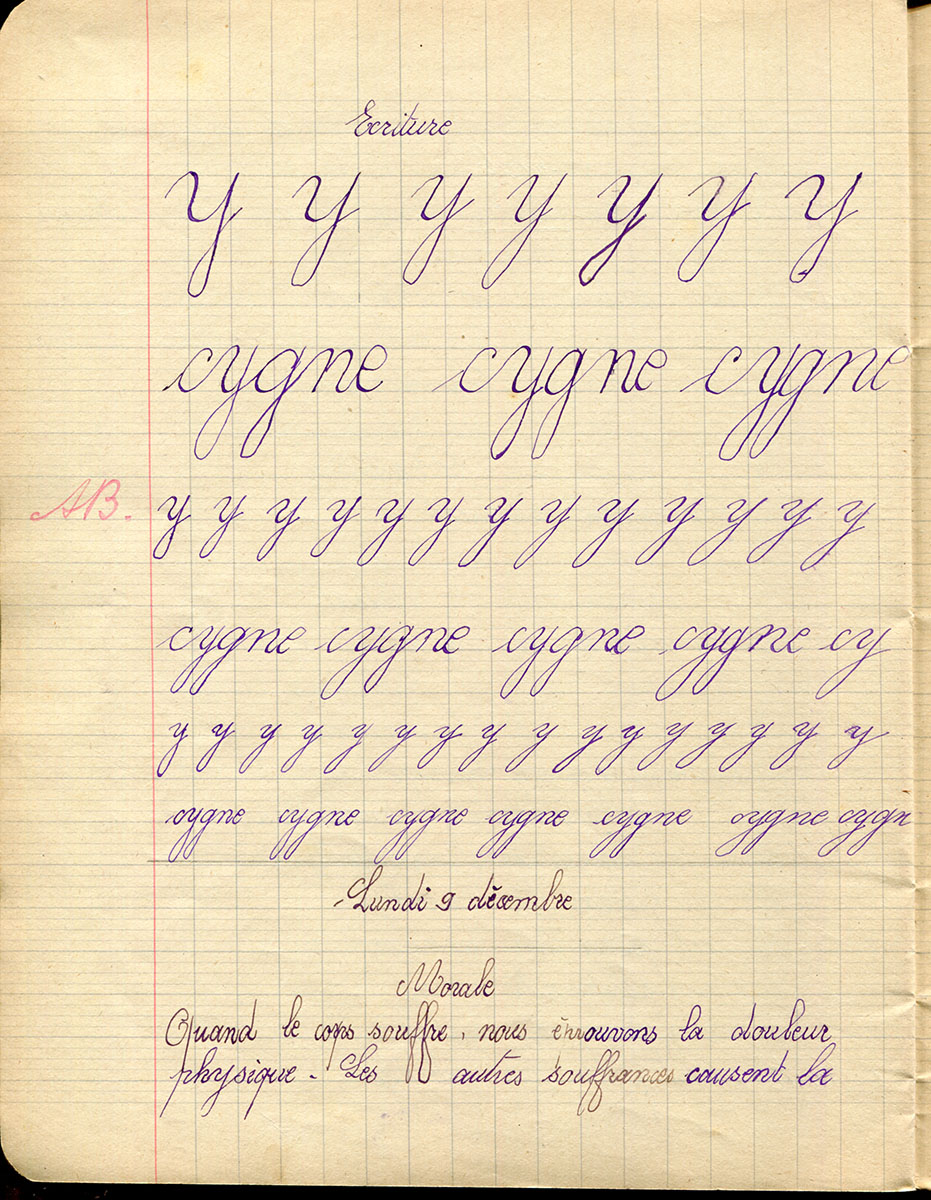 Ecriture
y y y y y y y
cygne cygne cygne
AB. y y y y y y y y y y y y y
cygne cygne cygne cygne cy
y y y y y y y y y y y y y y y y
cygne cygne cygne cygne cygne cygne cygn
Lundi 9 décembre
Morale
Quand le corps souffre, nous éprouvons la douleur
physique. Les autres souffrances causent la